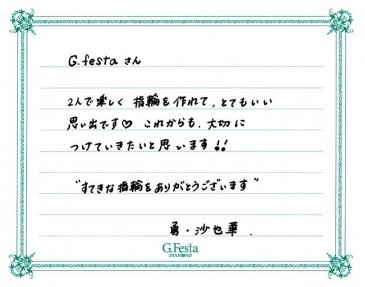 G.festaさん
2人で楽しく 指輪を作れて、とてもいい
思い出です♡ これからも、大切に
つけていきたいと思います!!
"すてきな指輪をありがとうございます"
勇・沙也華.
G.Festa
DIAMOND